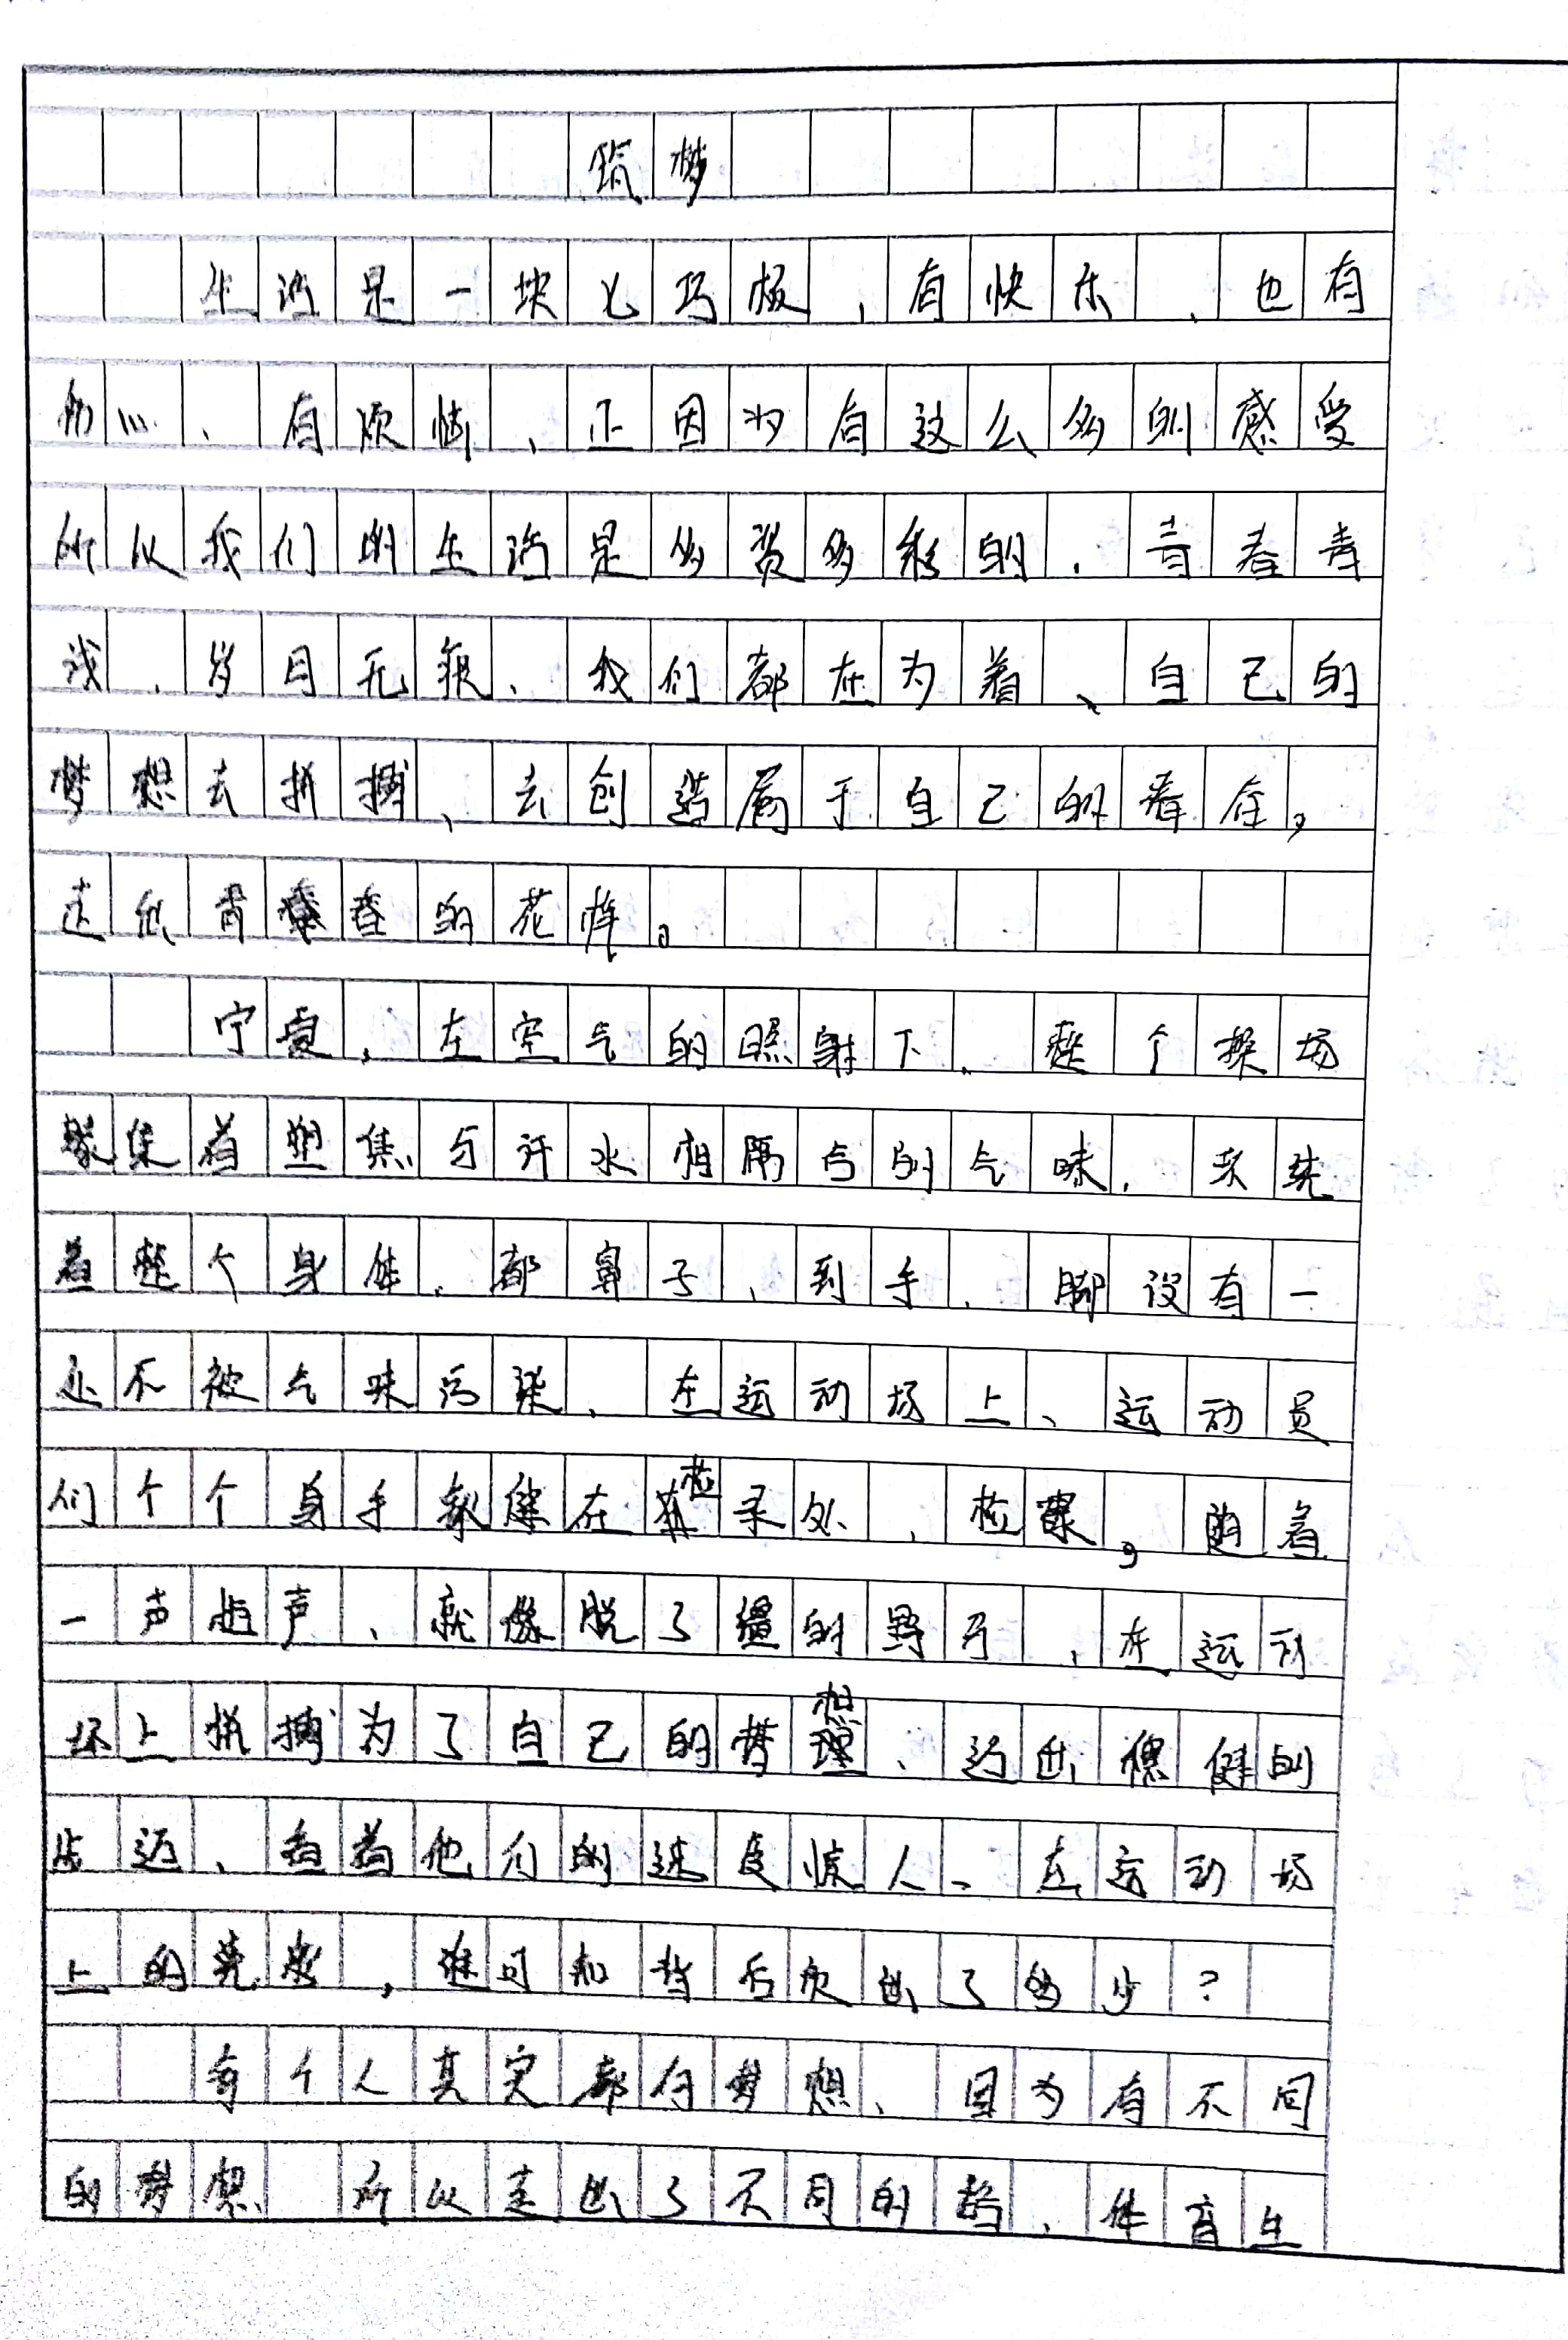 筑梦
生活是一块七巧板,有快乐、也有
伤心、有烦恼、正因为有这么多的感受
所以我们的生活是多资多彩的.青春青
浅、岁月无痕、我们都在为着、自己的
梦想去拼搏、去创造属于自己的春在,
走低青春的花样。
宁夏,在空气的照射下、整个操场
聚集着塑焦与汗水相隔与的气味,夹绕
着整个身体、都鼻子、到手、脚没有一
处不被气味污染、在运动场上、运动员
们个个身手敏健在检录处、检录,随着
一声枪声、就像脱了缰的野马,在运动
场上拼搏为了自己的梦想、迈出稳健的
步迈、看着他们的速度惊人、在运动场
上的亮出,谁可知背后负出了多少?
每个人其实都有梦想、因为有不同
的梦想 所以走出了不同的路、体育生